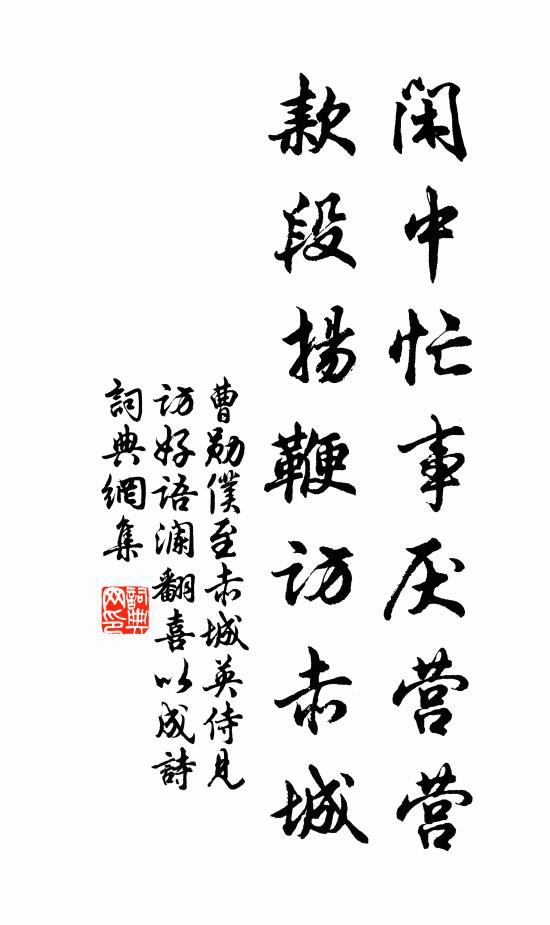 闲中忙事厌营营
款段揚鞭访赤城
曹勋僕至赤城英侍見
访好语澜翻喜以成詩
詞典網集
詞典网印